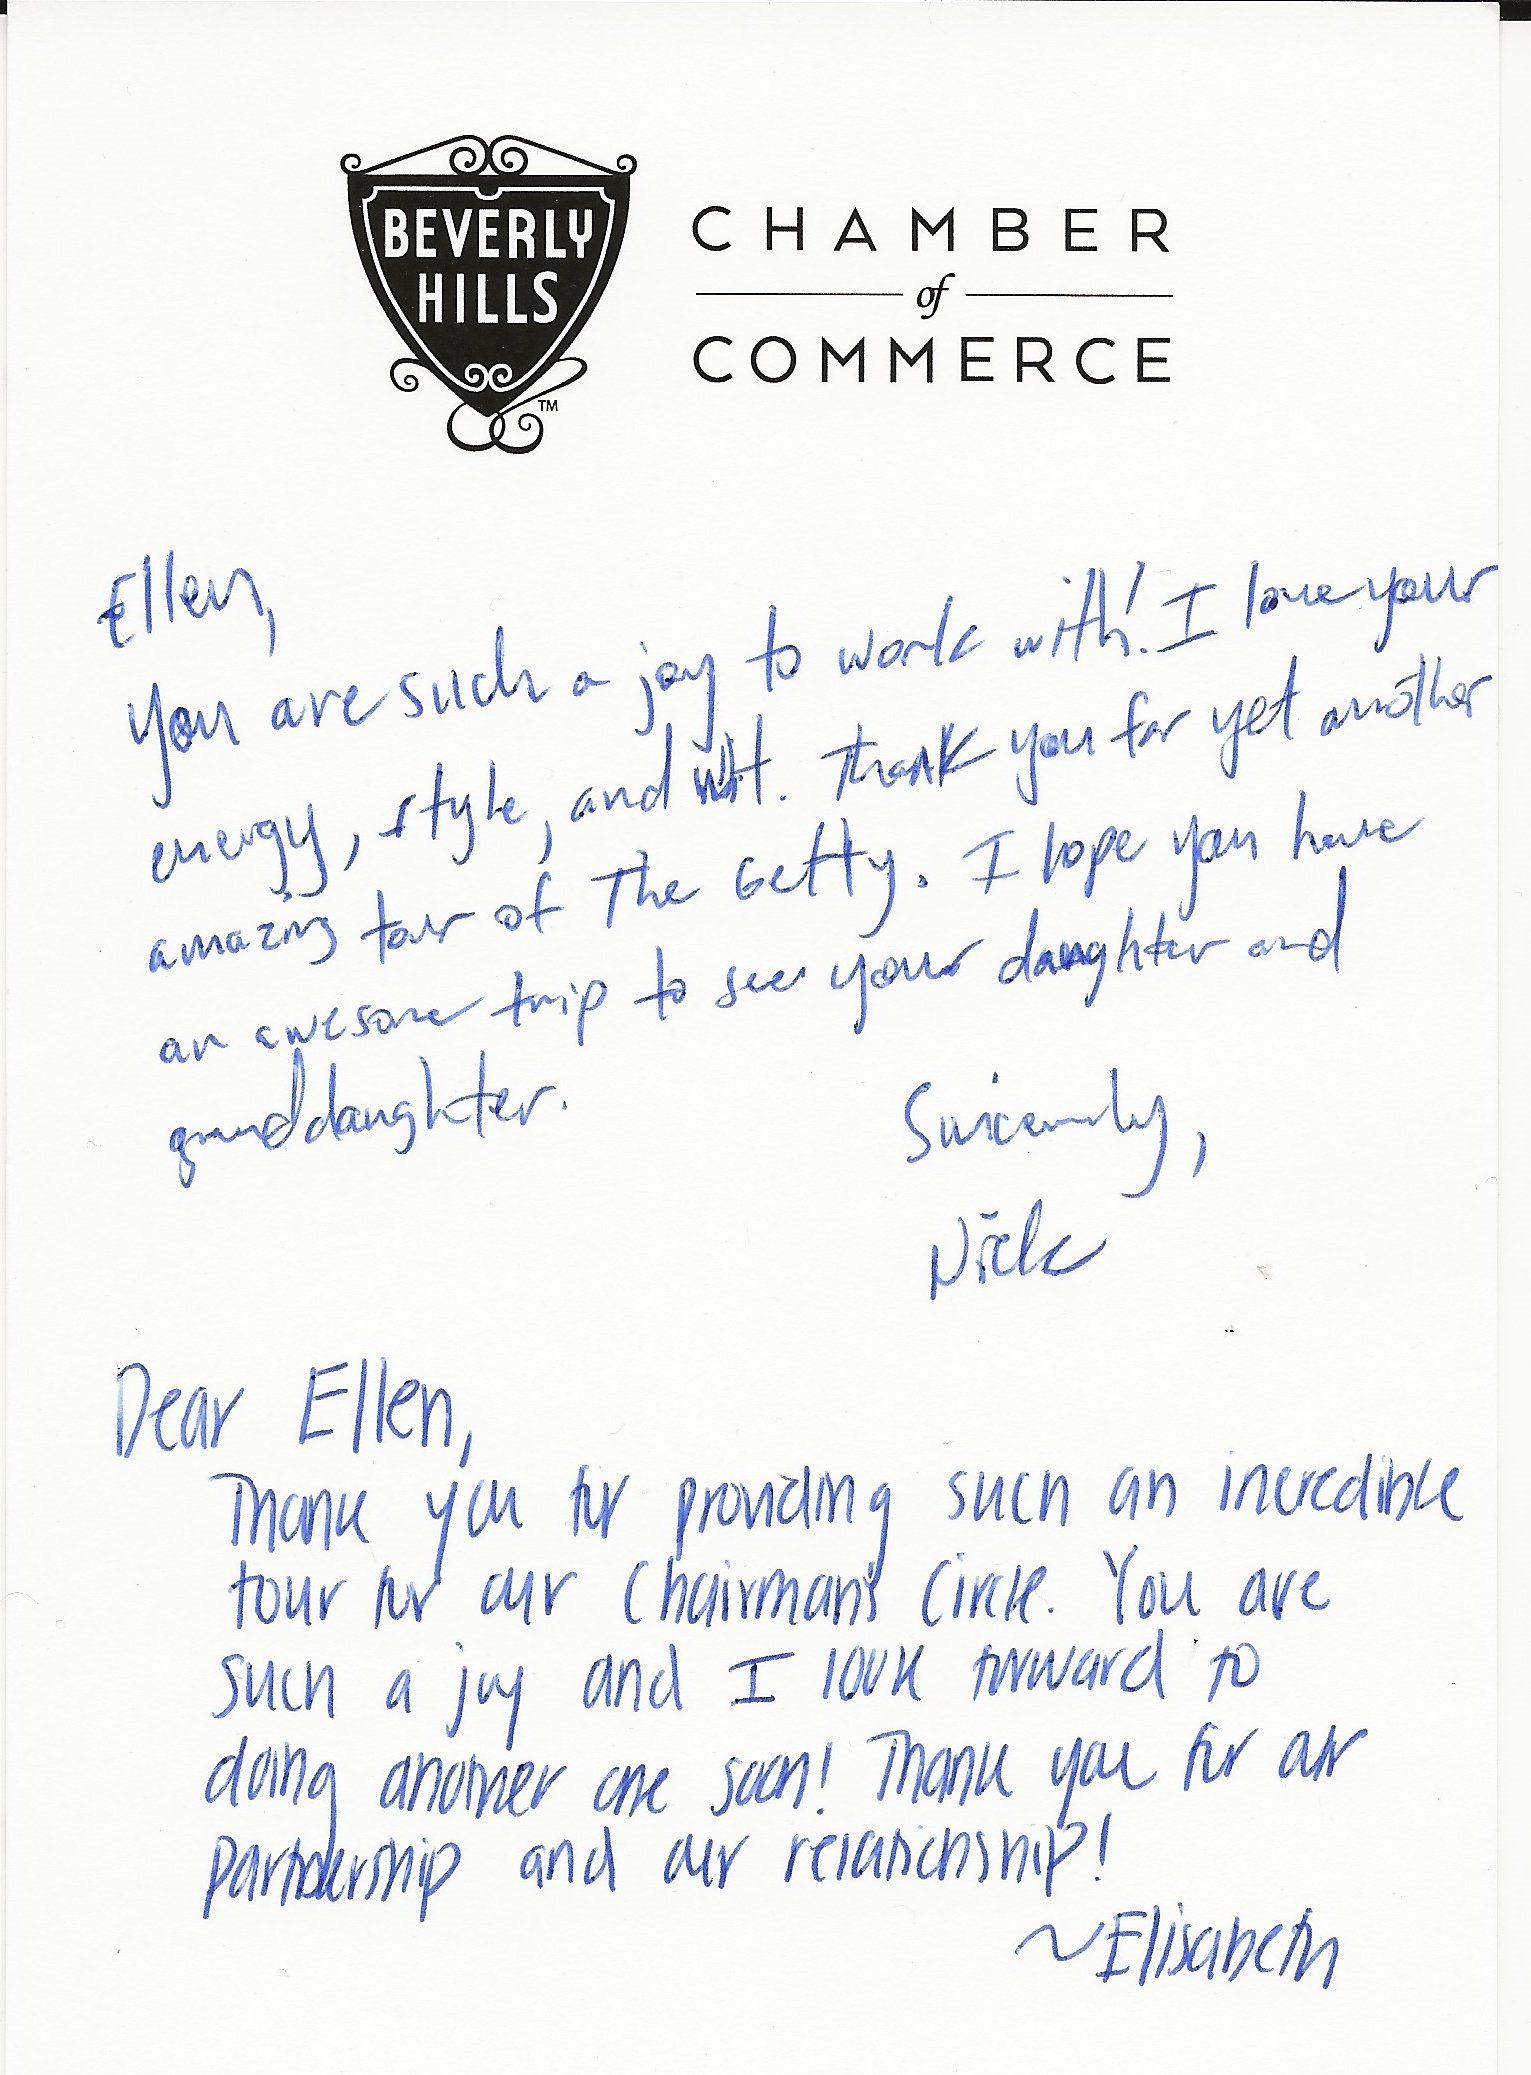 BEVERLY
HILLS
TM
CHAMBER
of
COMMERCE
Ellen,
You are such a joy to work with! I love your
energy, style, and wit. Thank you for yet another
amazing tour of The Getty. I hope you have
an awesome trip to see your daughter and
granddaughter.
Sincerely,
Nick
Dear Ellen,
Thank you for providing such an incredible
tour for our Chairman's Circle. You are
such a joy and I look forward to
doing another one soon! Thank you for our
partnership and our relationship!
~Elisabeth